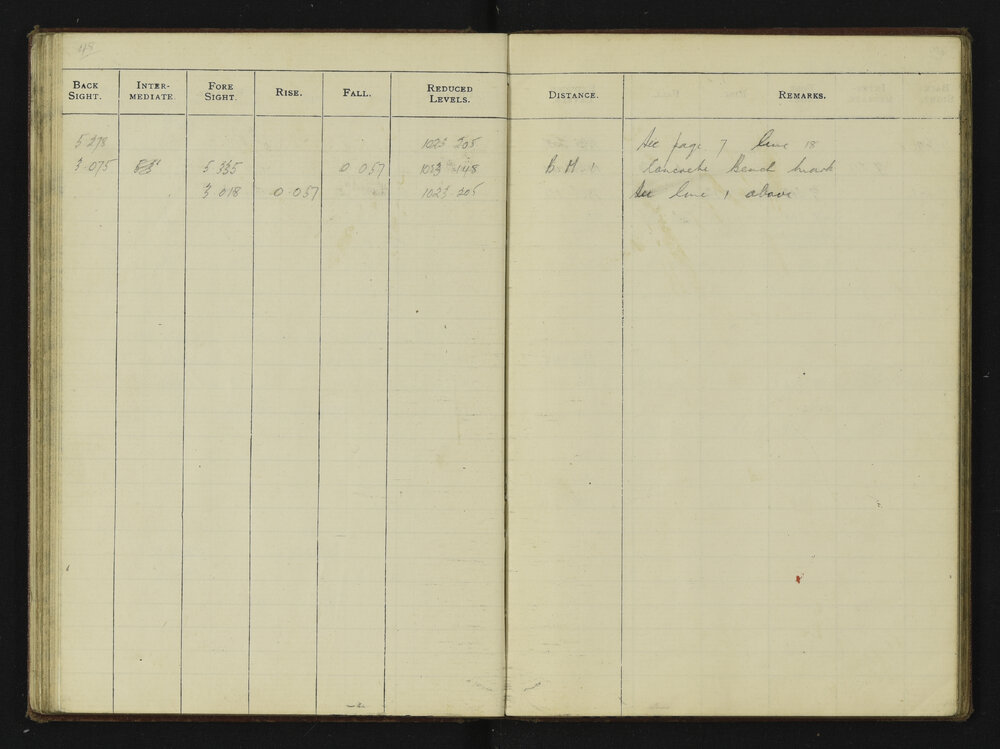 48
BACK SIGHT. INTER-MEDIATE FORE SIGHT. RISE. FALL. REDUCED LEVELS. DISTANCE. REMARKS.
5 278 1023 205 See page 7 line 18
3.075 5 335 0 057 1023 148 B. M. 1 Concrete Bench mark
3 018 0.057 1023 205 See line 1 above